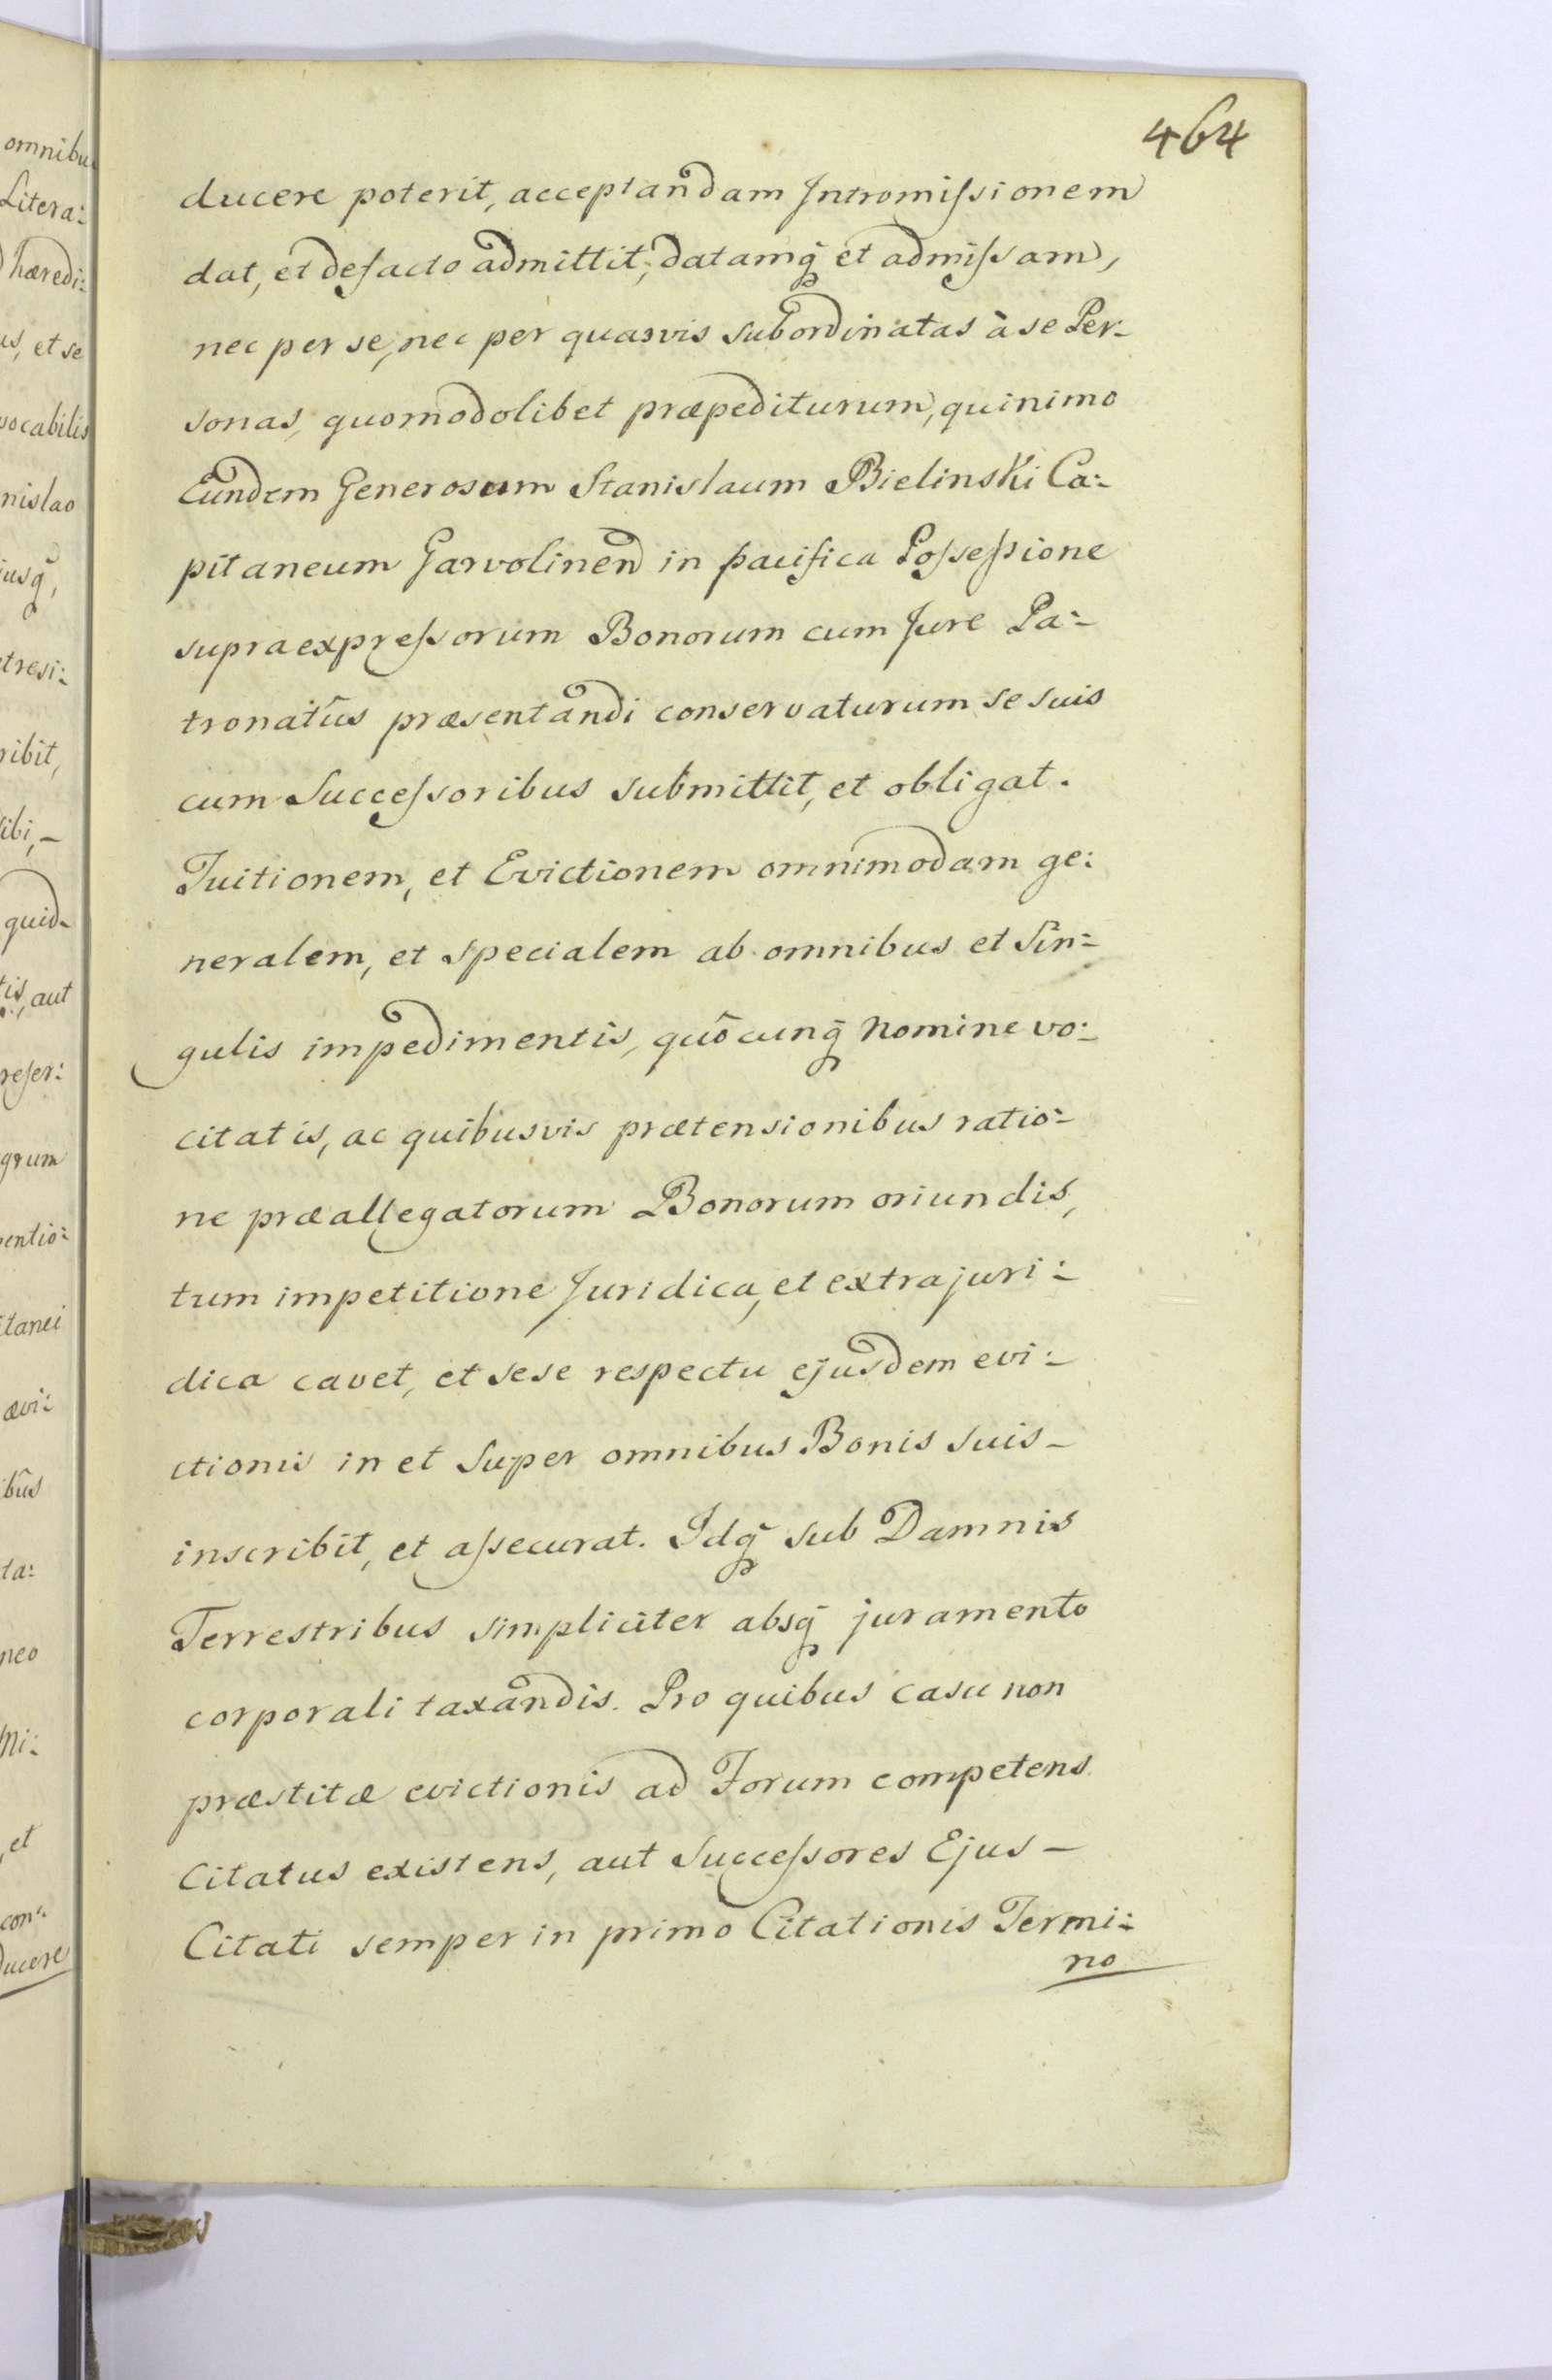 464
ducere poterit, acceptandam Intromissionem
dat, et defacto admittit, datamq̃ et admissam,
nec per se, nec per quasvis subordinatas à se Per-
sonas, quomodolibet præpediturum, quinimo
Eundem Generosum Stanislaum Bielinski Ca:
pitaneum Garvolinen̄ in pacifica Possessione
supraexpressorum Bonorum cum Jure Pa:
tronatûs præsentandi conservaturum se suis
cum Successoribus submittit, et obligat.
Tuitionem, et Evictionem omnimodam ge:
neralem, et specialem ab omnibus et Sin:
gulis impedimentis, quôcunq̃ Nomine vo:
citatis, ac quibusvis prætensionibus ratio:
ne præallegatorum Bonorum oriundis,
tum impetitione Juridica, et extrajuri:
dica cavet, et sese respectu ejusdem evi:
ctionis in et super omnibus Bonis suis-
inscribit, et assecurat. Idq̃ sub Damnis
Terrestribus simpliciter absq̃ juramento
corporali taxandis. Pro quibus casu non
præstitæ evictionis ad Forum competens
Citatus existens, aut Successores Ejus-
Citati semper in primo Citationis Termi:
no
omnibu
Litera:
hæredi:
us, et se
vocabilis
nislao
jusq̃,
tresi:
ribit,
ibi,-
quid-
tis, aut
refer:
grum
entio:
itanei
ævi:
bûs
ta:
neo
Mi:
et
con:
ducere